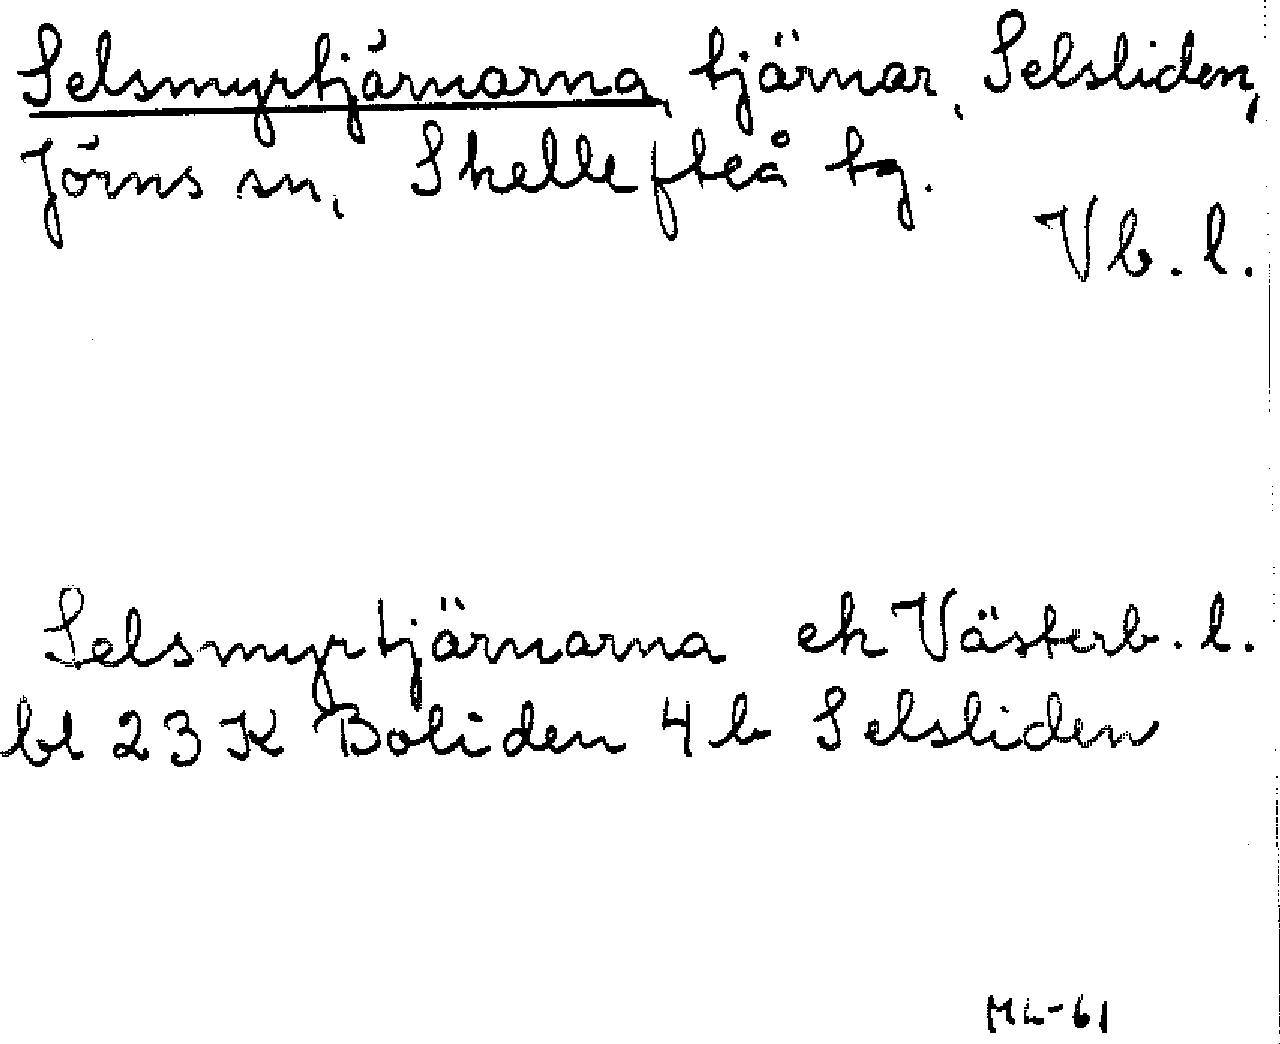 Selsmyrtjärnarna, tjärnar, Selsliden,
Jörns sn, Skellefteå tg.
Vb. l.
Selsmyrtjärnarna ek Västerb. l.
bl 23 K Boliden 4 b Selsliden
ML-61